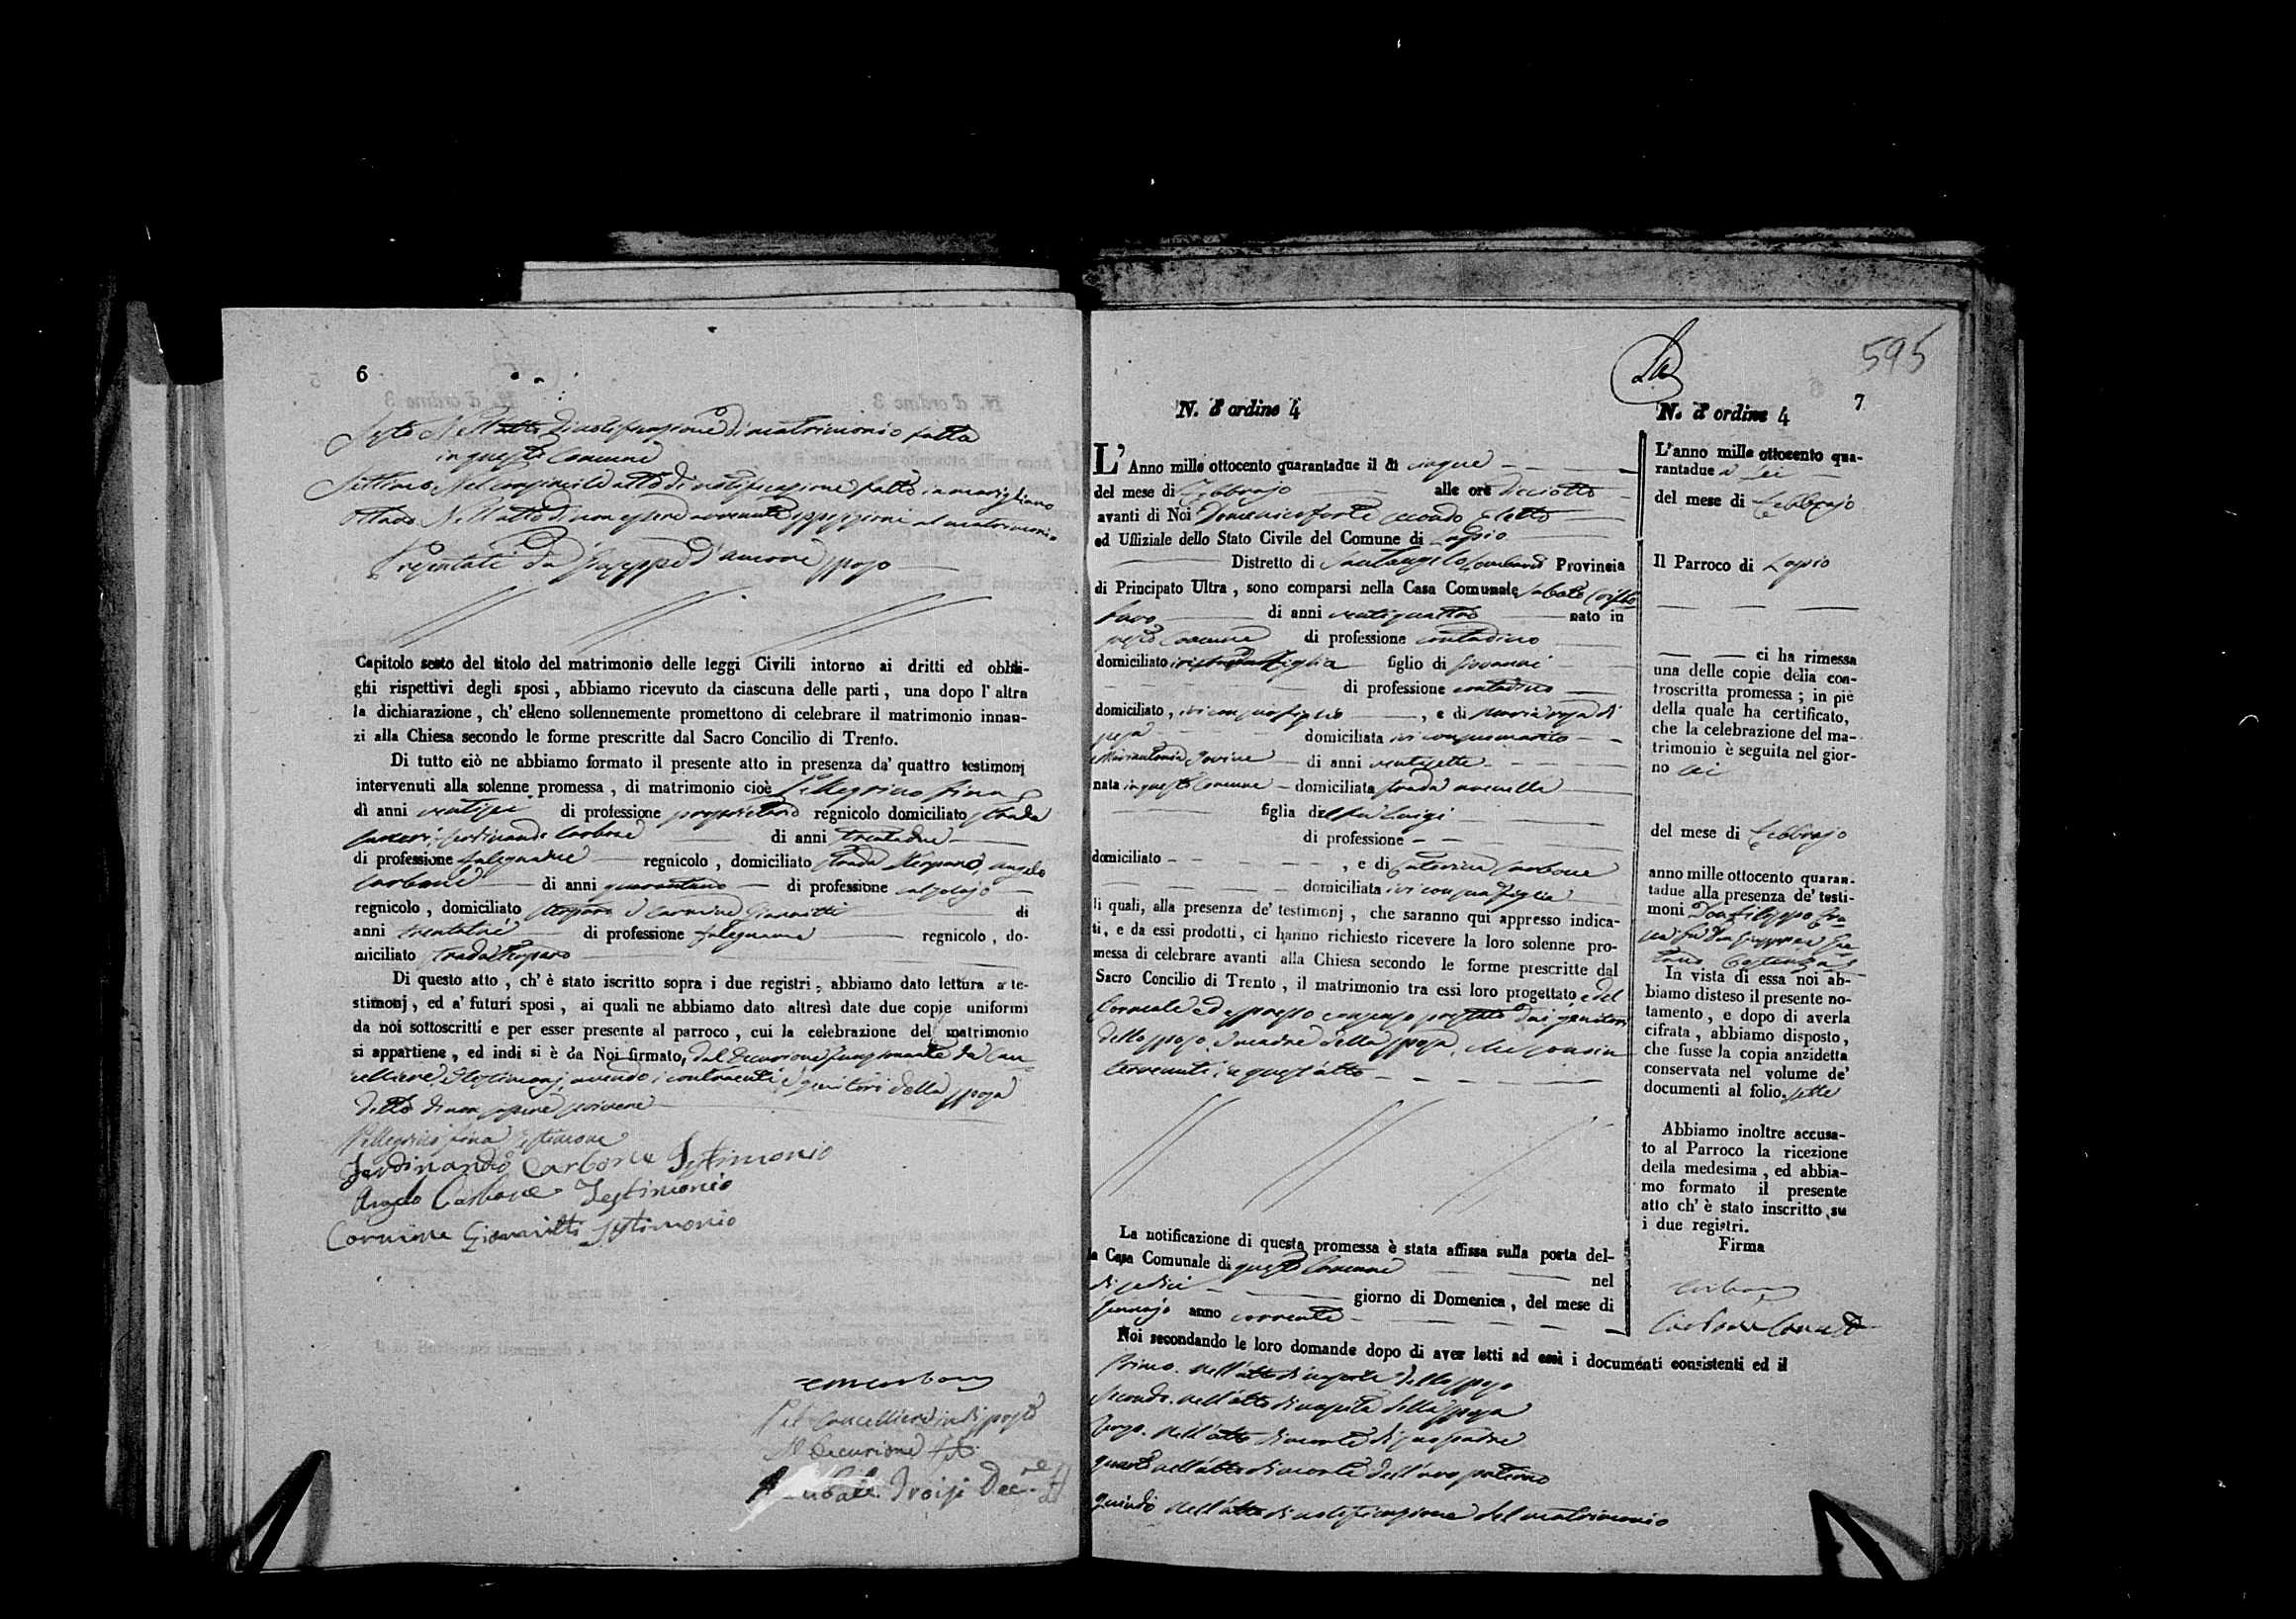 6
Sesto Nell'atto di notificazione di matrimonio fatta
in questo Comune
Settimo. Nel consimile atto di notificazione fatto in Marigliano
Ottavo. Nell'atto di non essere avvenute opposizioni al matrimonio
Presentati da Giuseppe d'Amore sposo
Capitolo sesto del titolo del matrimonio delle leggi Civili intorno ai dritti ed obbli-
ghi rispettivi degli sposi, abbiamo ricevuto da ciascuna delle parti, una dopo l'altra
la dichiarazione, ch'elleno sollennemente promettono di celebrare il matrimonio innan-
zi alla Chiesa secondo le forme prescritte dal Sacro Concilio di Trento.
Di tutto ciò ne abbiamo formato il presente atto in presenza da' quattro testimonj
intervenuti alla solenne promessa, di matrimonio cioè Pellegrino Fina
di anni ventisei di professione proprietario regnicolo domiciliato strada
Ferdinando Carbone di anni trentadue
di professione falegname regnicolo, domiciliato strada Angelo
Carbone di anni quarantuno di professione calzolajo
regnicolo, domiciliato e Carmine Giannitti di
anni trentatré di professione falegname regnicolo, do-
miciliato strada
Di questo atto, ch'è stato iscritto sopra i due registri, abbiamo dato lettura a' te-
stimonj, ed a' futuri sposi, ai quali ne abbiamo dato altresì date due copie uniformi
da noi sottoscritti e per esser presente al parroco, cui la celebrazione del matrimonio
si appartiene, ed indi si è da Noi firmato, dal Decurione funzionante da Can-
celliere e testimonj avendo i contraenti e genitori della sposa
detto di non sapere scrivere
Pellegrino Fina testimone
Ferdinando Carbone Testimonio
Angelo Carbone Testimonio
Carmine Giannitti Testimonio
Pel Cancelliere indisposto
Il Decurione
Troisi Dec.
595
7
N. d'ordine 4
L'Anno mille ottocento quarantadue il dì cinque
del mese di Febbrajo alle ore diciotto
avanti di Noi Domenico Forte secondo Eletto
ed Uffiziale dello Stato Civile del Comune di Lapio
Distretto di Santangelo Lombardi Provincia
di Principato Ultra, sono comparsi nella Casa Comunale Sabato
di anni ventiquattro nato in
Comune di professione contadino
domiciliato figlio di Giovanni
di professione contadino
domiciliato, ivi con suo figlio, e di Maria Rosa di
domiciliata ivi con suo marito
Mariantonia Iovine di anni ventisette
nata in questo Comune domiciliata strada
figlia del fu Luigi
di professione
domiciliato, e di Caterina Carbone
domiciliata ivi con sua figlia
li quali, alla presenza de' testimonj, che saranno qui appresso indica-
ti, e da essi prodotti, ci hanno richiesto ricevere la loro solenne pro-
messa di celebrare avanti alla Chiesa secondo le forme prescritte dal
Sacro Concilio di Trento, il matrimonio tra essi loro progettato, e del
formale ed espresso consenso prestato dai genitori
dello sposo, e madre della sposa, che sono in
tervenuti in quest'atto
La notificazione di questa promessa è stata affissa sulla porta del-
la Casa Comunale di questo Comune nel
dì sedici giorno di Domenica, del mese di
Gennajo anno corrente
Noi secondando le loro domande dopo di aver letti ad essi i documenti consistenti ed il
Primo. Nell'atto di nascita dello sposo
Secondo. Nell'atto di nascita della sposa
Terzo. Nell'atto di morte di suo padre
Quarto Nell'atto di morte dell'avo paterno
Quinto Nell'atto di notificazione del matrimonio
N. d'ordine 4
L'anno mille ottocento qua-
rantadue a' sei
del mese di Febbrajo
Il Parroco di Lapio
ci ha rimessa
una delle copie della con-
troscritta promessa; in piè
della quale ha certificato,
che la celebrazione del ma-
trimonio è seguita nel gior-
no sei
del mese di Febbrajo
anno mille ottocento quaran-
tadue alla presenza de' testi-
moni Don Filippo
fu Don Giuseppe e
In vista di essa noi ab-
biamo disteso il presente no-
tamento, e dopo di averla
cifrata, abbiamo disposto,
che fusse la copia anzidetta
conservata nel volume de'
documenti al folio sette
Abbiamo inoltre accusa-
to al Parroco la ricezione
della medesima, ed abbia-
mo formato il presente
atto ch'è stato inscritto su
i due registri.
Firma